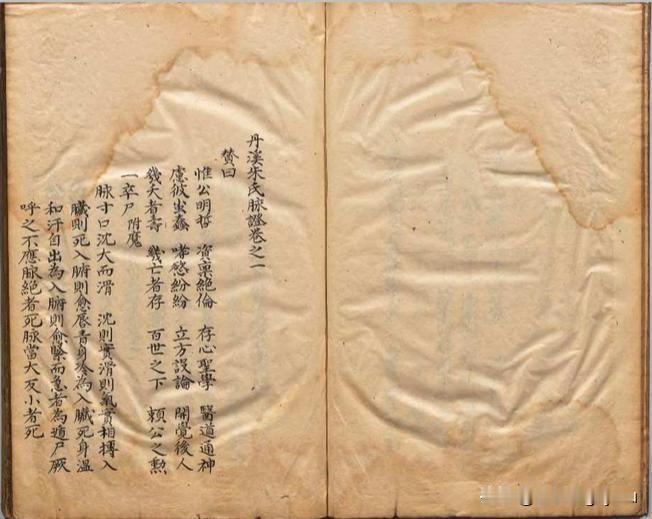 丹溪朱氏脉證卷之一
贊曰
惟公明哲 資稟絕倫 存心聖學 醫道通神
慮彼蚩蠢 嗜慾紛紛 立方設論 開覺後人
幾夭者壽 幾亡者存 百世之下 賴公之勲
一卒尸 附魘
脉寸口沉大而滑 沉則實滑則氣實相摶入
臟則死入腑則愈唇青身冷為入臟死身温
和汗自出為入腑則愈緊而急者為遁尸厥
呼之不應脉絕者死脉當大反小者死